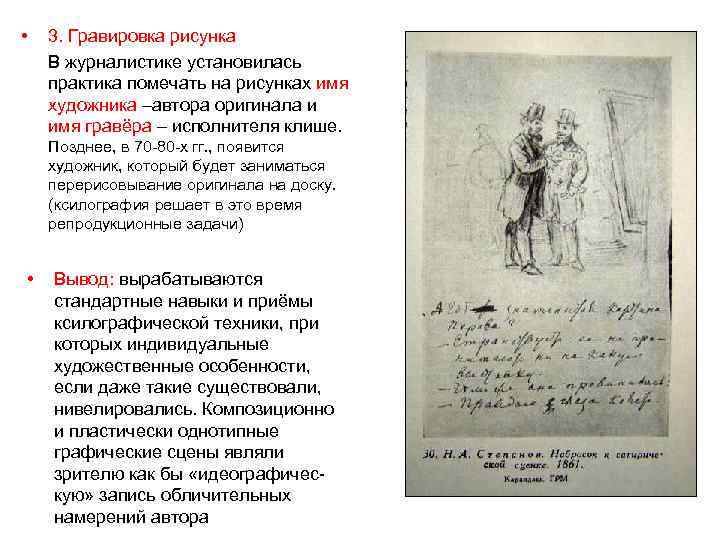 • 3. Гравировка рисунка
В журналистике установилась
практика помечать на рисунках имя
художника –автора оригинала и
имя гравёра – исполнителя клише.
Позднее, в 70-80-х гг., появится
художник, который будет заниматься
перерисовывание оригинала на доску.
(ксилография решает в это время
репродукционные задачи)
• Вывод: вырабатываются
стандартные навыки и приёмы
ксилографической техники, при
которых индивидуальные
художественные особенности,
если даже такие существовали,
нивелировались. Композиционно
и пластически однотипные
графические сцены являли
зрителю как бы «идеографичес-
кую» запись обличительных
намерений автора
картина
Перова?
ни на какую
- Правдою глаза колет.
30. Н. А. Степанов. Набросок к сатириче-
ской сценке. 1861.
Карандаш. ГРМ.